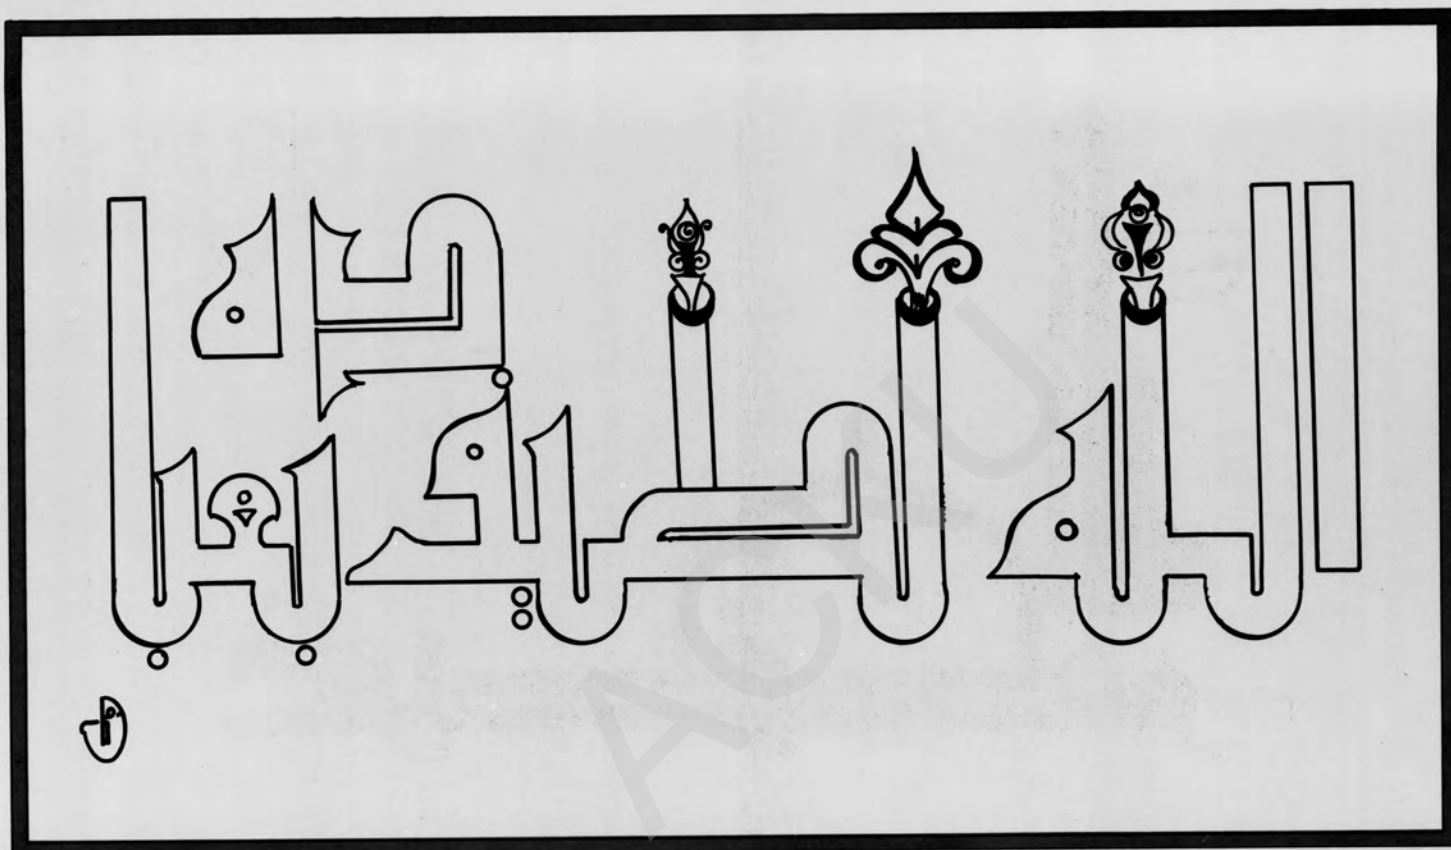 الله لطيف بعباده
ACKU